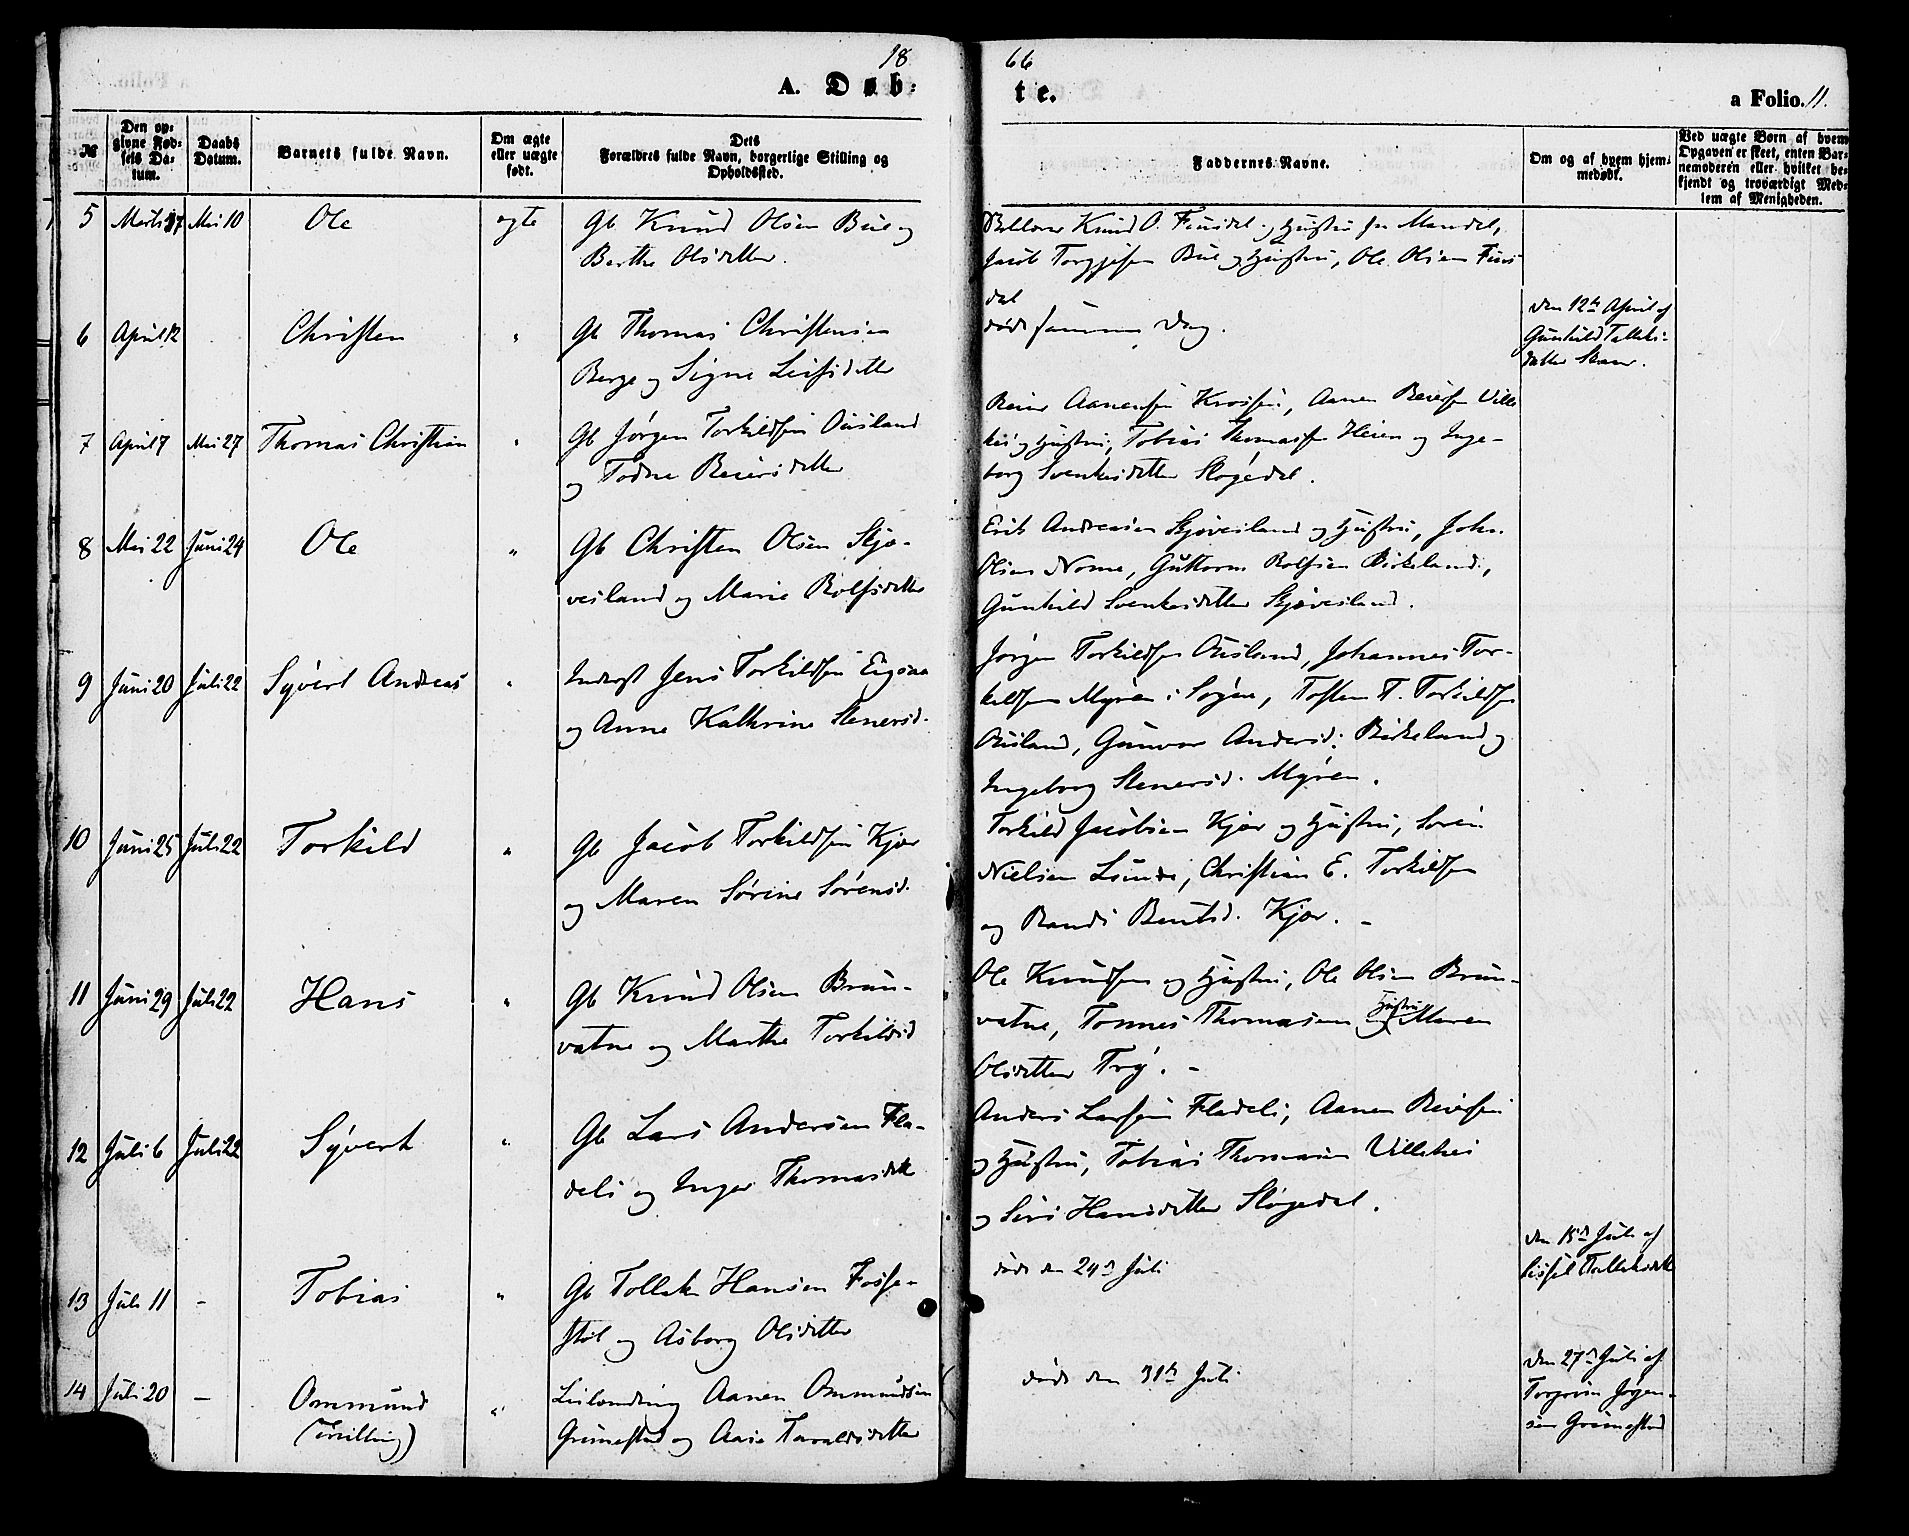 18 66
A. Døb: te.
a Folio. 11.
№
Den op-
givne Fød-
sels Da-
tum.
Daabs
Datum.
Barnets fulde Navn.
Om ægte
eller uægte
født.
Dets
Forældres fulde Navn, borgerlige Stilling og
Opholdssted.
Faddernes Navne.
Om og af hvem hjem-
medøbt.
Ved uægte Børn af hvem
Opgaven er skeet, enten Bar-
nemoderen eller hvilket be-
kjendt og troværdigt Med-
lem af Menigheden.
5 Marts 17 Mai 10 Ole ægte Gb Knud Olsen Bue og
Berthe Olsdatter.
Knud O. Finsdal og Hustru fra Mandal,
Jacob Torgjesen Bue og Hustru, Ole Olsen Fins
dal
6 April 12 Christen " Gb Thomas Christensen
Berge og Signe Leifsdatter
døde samme Dag.
den 12te April af
Gunhild Talleks-
datter Skaar.
7 April 7 Mai 27 Thomas Christian " Gb Jørgen Torkildsen Ousland
og Todne Reiersdatter
Reier Aanensen Krossen, Aanen Reiersen Ville
kei og Hustru, Tobias Thomassen Heien og Inge-
borg Svenkesdatter Sløgedal.
8 Mai 22 Juni 24 Ole " Gb Christen Olsen Skjø-
veiland og Marie Rolfsdatter
Erik Andreasen Skjøveiland og Hustru, John
Olsen Nome, Guttorm Rolfsen Birkeland,
Gunhild Svenkesdatter Skjøveiland.
9 Juni 20 Juli 22 Syvert Andreas " Inderst Jens Torkildsen Eigsaa
og Anne Kathrine Stenersd.
Jørgen Torkildsen Ousland, Johannes Tor-
kildsen Myren i Søgne, Tosten T. Torkildsen
Ousland, Gunvor Andersd. Birkeland og
Ingeborg Stenersd. Myren.
10 Juni 25 Juli 22 Torkild " Gb Jacob Torkildsen Kjær
og Maren Sørine Sørensd.
Torkild Jacobsen Kjær og Hustru, Søren
Nielsen Lunde, Christian E. Torkildsen
og Randi Bentsd. Kjær. -
11 Juni 29 Juli 22 Hans " Gb Knud Olsen Brun-
vatne og Marthe Torkildsd
Ole Knudsen og Hustru, Ole Olsen Brun-
vatne, Tønnes Thomasen og Hustru Maren
Olsdatter Try. -
12 Juli 6 Juli 22 Syvert " Gb Lars Andersen Fla-
dels og Inger Thomasdatt
Anders Larsen Fladels, Aanen Reiersen
og Hustru, Tobias Thomasen Villekei
og Siri Hansdatter Sløgedal.
13 Juli 11 - Tobias " Gb Tollek Hansen Fosse-
støl og Asborg Olsdatter
døde den 24de Juli
den 15de Juli af
Sissel Talleksdatt
14 Juli 20 - Ommund
(Tvilling) " Leilænding Aanen Ommundsen
Grimestad og Aase Taraldsdatter
døde den 31te Juli
den 27de Juli af
Torgrim Jørgen-
sen Grimestad